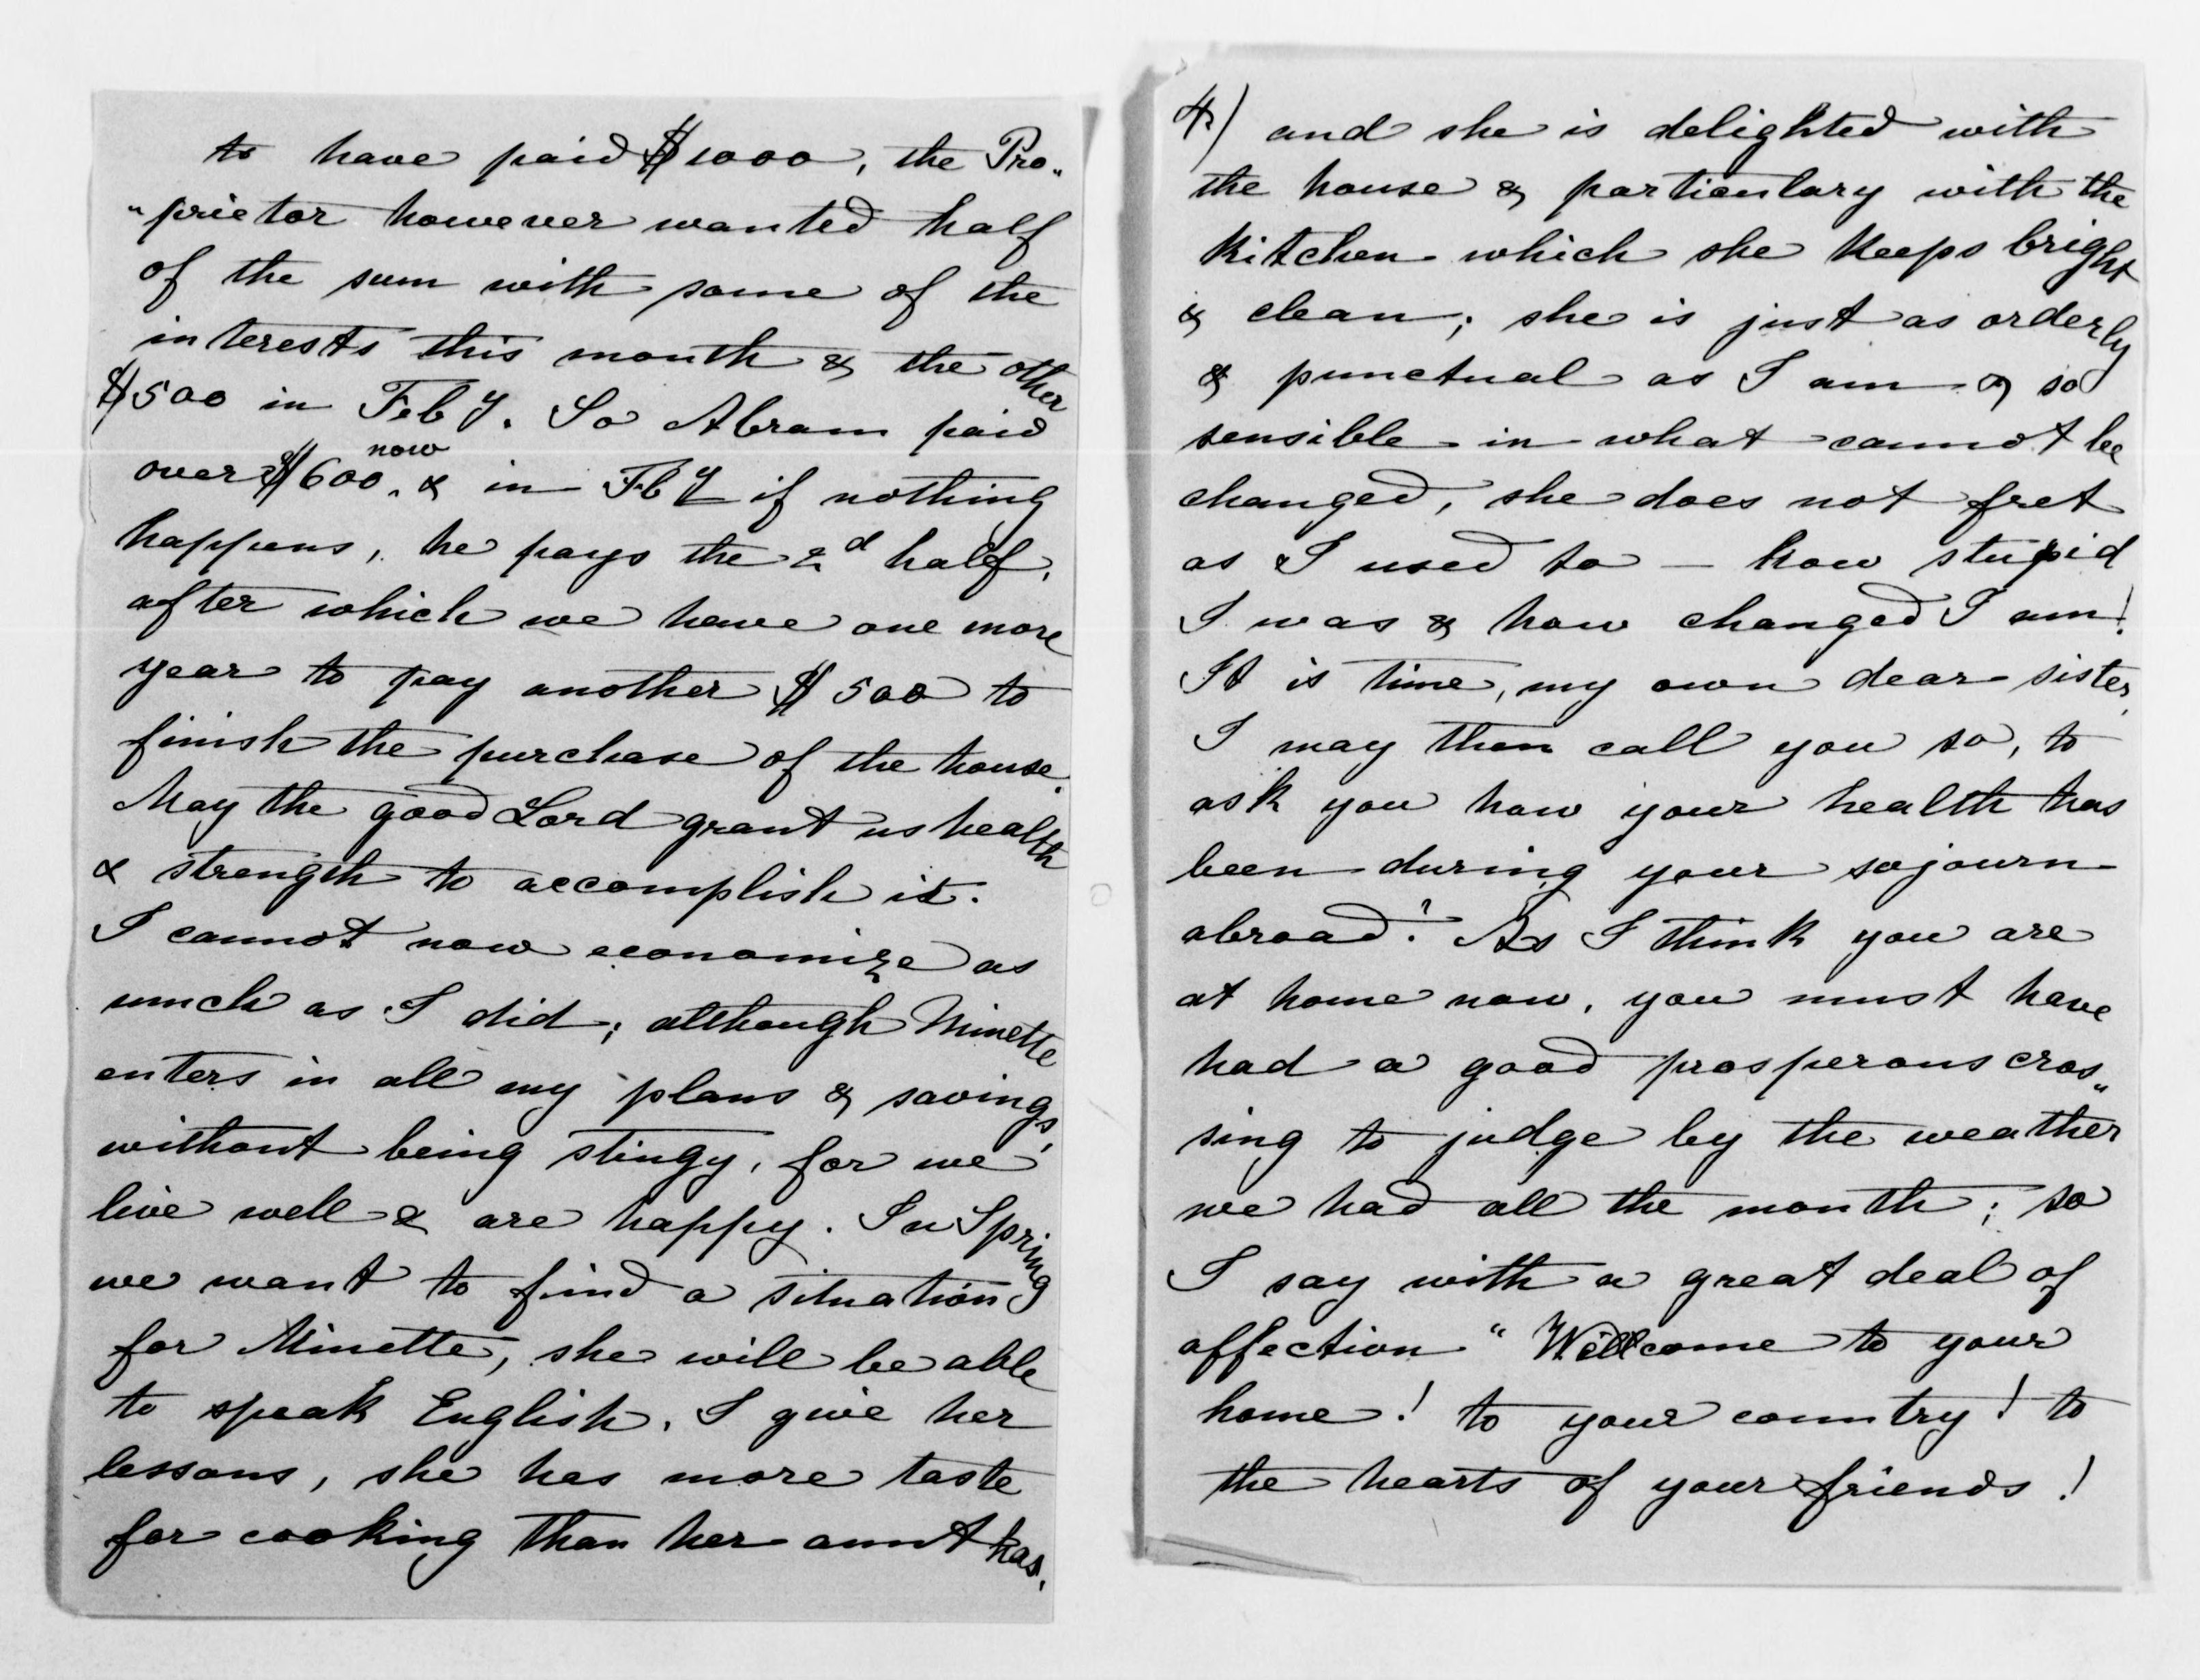 to have paid $1000, the Pro„
„prietor however wanted half
of the sum with some of the
interests this month & the other
$500 in Feby. So Abram paid
over $600. now & in Fby if nothing
happens, he pays the 2d half,
after which we have one more
year to pay another $500 to
finish the purchase of the house.
May the good Lord grant us health
& strength to accomplish it.
I cannot now economize as
much as I did; although Minette
enters in all my plans & savings,
without being stingy, for we
live well & are happy. In Spring
we want to find a situation
for Minette, she will be able
to speak English. I give her
lessons, she has more taste
for cooking than her aunt has.
4) and she is delighted with
the house & particulary with the
kitchen which she keeps bright
& clean; she is just as orderly
& punctual as I am & so
sensible in what cannot be
changed, she does not fret
as I used to — how stupid
I was & how changed I am!
It is time, my own dear sister,
I may then call you so, to
ask you how your health has
been during your sojourn
abroad? As I think you are
at home now, you must have
had a good prosperous cros„
sing to judge by the weather
we had all the month; so
I say with a great deal of
affection "Wellcome to your
home! to your country! to
the hearts of your friends!